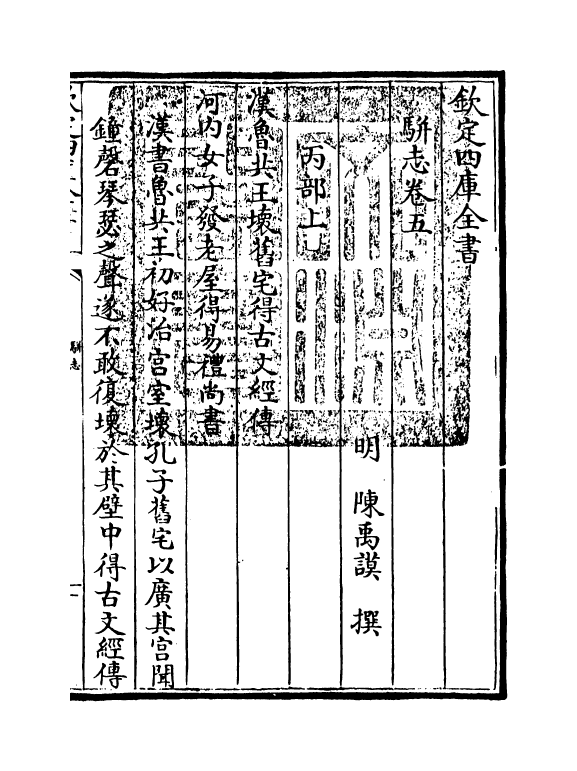 欽定四庫全書
駢志卷五
明 陳禹謨 撰
丙部上
漢魯共王壞舊宅得古文經傳
河內女子發老屋得易禮尚書
漢書魯共王初好治宮室壞孔子舊宅以廣其宮聞
鐘磬琴瑟之聲遂不敢復壞於其壁中得古文經傳
駢志